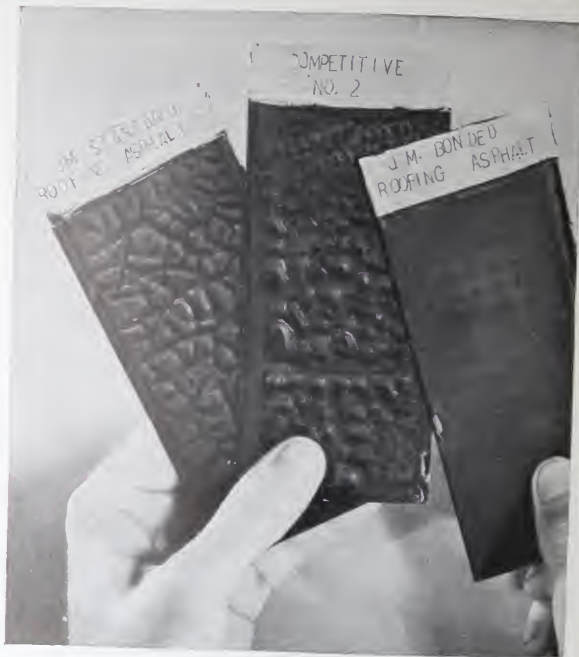 J M STANDARD
ROOF G ASPHALT
OMPETITIVE
NO. 2
J. M. BONDED
ROOFING ASPHALT